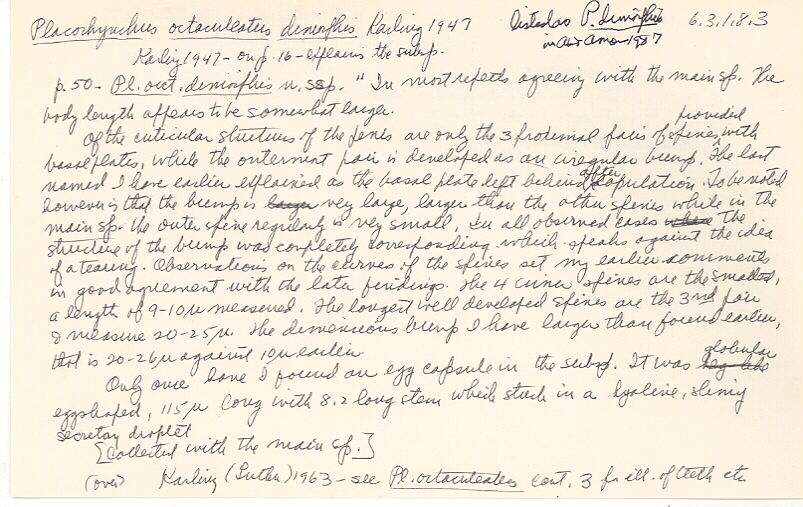 Placorhynchus octaculeatus dimorphis Karling 1947 listed as P. dimorphis 6.3.1.8.3
in Ax & Amor 1987
Karling 1947 - on p. 16 - explains the subsp.
p. 50 - Pl. oct. dimorphis n. ssp. "In most repects agreeing with the main sp. The
body length appears to be somewhat larger.
Of the cuticular structures of the penis are only the 3 proximal pairs of spines provided with
basal plates, while the outermost pair is developed as an irregular bump. The last
named I have earlier explained as the basal plate left behind after copulation. To be noted
however is that the bump is larger very large, larger than the other spines while in the
main sp. the outer spine regularly is very small. In all observed cases where the
structure of the bump was completely corresponding which speaks against the idea
of a tearing. Observations on the curves of the spines set my earlier comments
in good agreement with the later findings. The 4 inner spines are the smallest,
a length of 9-10µ measured. The longest well developed spines are the 3rd pair
& measure 20-25µ. The dimensions bump I have larger than found earlier,
that is 20-26µ against 10µ earlier.
Only once have I found an egg capsule in the subsp. It was egg-like globular
eggshaped, 115µ long with 8.2 long stem which stuck in a hyaline, slimy
secretory droplet
[Collected with the main sp.]
(over) Karling (Luther) 1963 - see Pl. octaculeatus cont. 3 for ill. of teeth etc